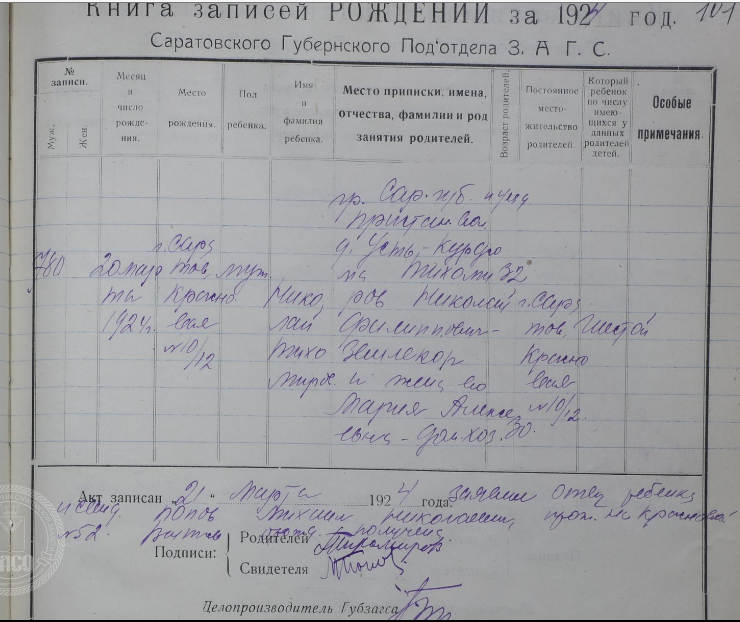 Книга записей РОЖДЕНИЙ за 1924 год. 101
Саратовского Губернского Под'отдела З. А. Г. С.
№ записи.
Муж.
Жен.
Месяц и число рождения.
Место рождения.
Пол ребенка.
Имя и фамилия ребенка.
Место приписки, имена, отчества, фамилии и род занятия родителей.
Возраст родителей.
Постоянное местожительство родителей.
Который ребенок по числу имеющихся у данных родителей детей.
Особые примечания.
780
20 марта
1924г.
г. Сара
тов,
Красно
вая
№10/12
муж.
Нико
лай
Тихо
миров
гр. Сар. губ. и уезда
Пристан. вол.
д. Усть-Курдю
ма Тихоми
ров Николай
Филиппович-
Землекоп
и жена его
Мария Алексе
евна - домхоз.
32
30.
г. Сара
тов,
Красно
вая
№10/12.
Шестой
Акт записан "21" марта 1924 года. Заявили отец ребенка
и свид. Попов Михаил Николаевич, прож. на Красновой
№52.
Подписи:
Родителей Тихомиров
Свидетеля МПопов
Делопроизводитель Губзагса